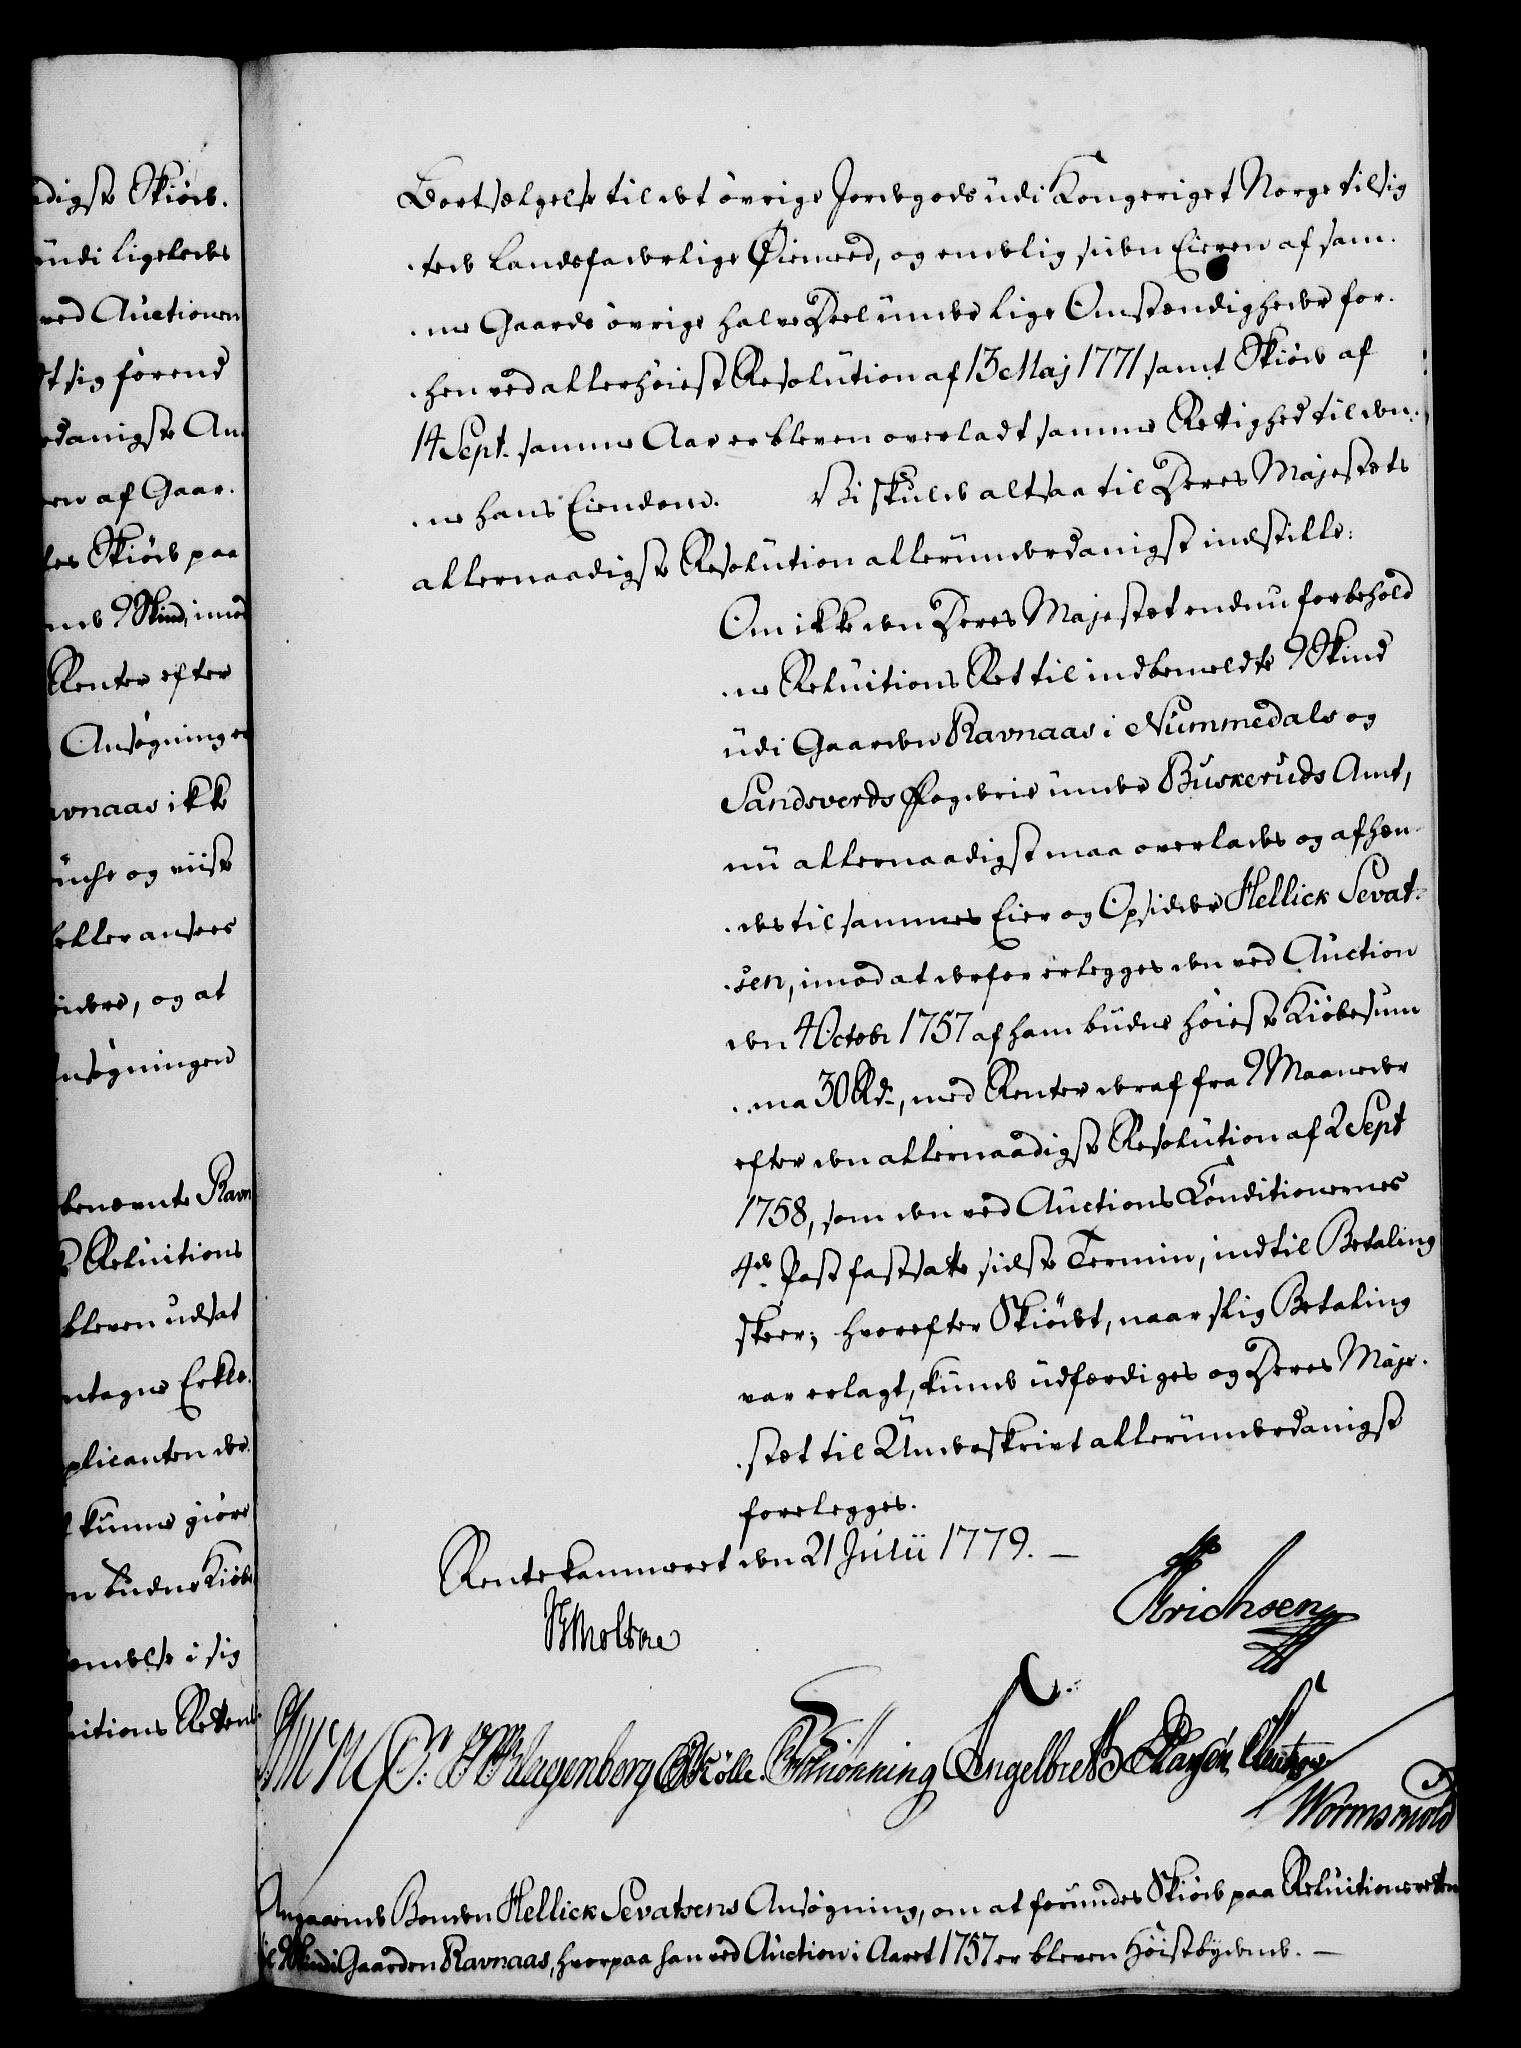 digste Skiöde.
undi ligeledes
ved Auctionen
sig förend
danigste An-
en af Gaar-
Skiöde paa
9 Skind, imod
Renter efter
Ansögningen
avnaas ikke
og viist
heller ansees
, og at
nsögningen
benævnte Ravn
Reluitions
bleven udsat
ntagne Erklæ-
plicanten der-
kunne giöre
budne Kiöbe
i sig
uitions Retten
Bortsælgelse til det övrige Jordegods udi Kongeriget Norge tilsig-
tede Landsfaderlige Öiemeed, og endelig siden Eieren af sam-
me Gaards övrige halve Deel under lige Omstændigheder for-
hen ved allerhöieste Resolution af 13 Maj 1771 samt Skiöde af
14 Sept. samme Aar er bleven overladt samme Rettighed til den-
ne hans Eiendom. Vi skulde altsaa til Deres Majestæts
allernaadigste Resolution allerunderdanigst indstille:
Om ikke den Deres Majestæt endnu forbehold-
ne Reluitions Ret til indbemeldte 9 Skind
udi Gaarden Ravnaas i Nummedals og
Sandsverds Fogderie under Buskeruds Amt,
nu allernaadigst maa overlades og afhæn-
des til sammes Eier og Opsidder Hellick Sevat-
sen, imod at derfor erlegges den ved Auction
den 4 Octobr 1757 af ham budne höieste Kiöbesum-
ma 30 Rd., med Renter deraf fra 9 Maaneder
efter den allernaadigste Resolution af 2 Sept
1758, som den ved Auctions Conditionernes
4de Post fastsatte sidste Termin, indtil Betaling
skeer; hvorefter Skiödet, naar slig Betaling
var erlagt, kunde udfærdiges og Deres Maje-
stæt til Underskrivt allerunderdanigst
forelegges.
Rentekammeret den 21 Julii 1779.
Moltke
Erichsen
Klagenberg Kölle. Schiönning Engelbreth Hansen
Wormskiold
Angaaende Bonden Hellick Sevatsens Ansögning, om at forundes Skiöde paa Reluitionsretten
til 9 Skind i Gaarden Ravnaas, hvorpaa han ved Auction i Aaret 1757 er bleven Höistbydende.